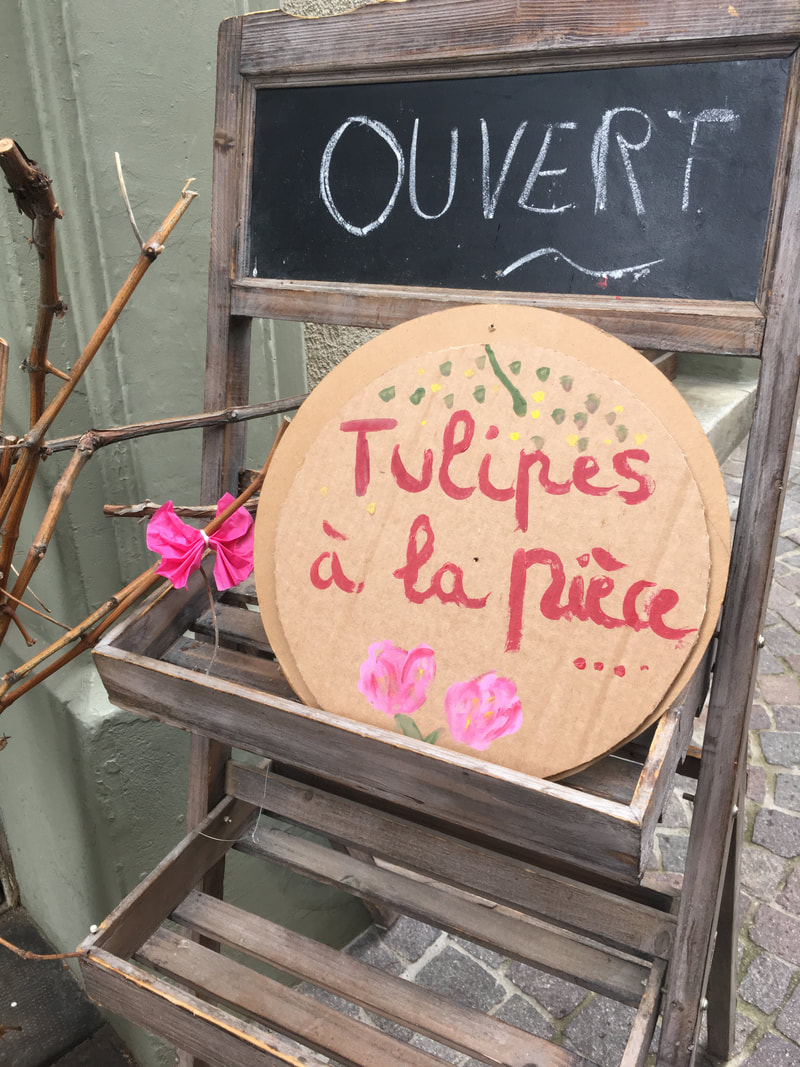 OUVERT
Tulipes
à la pièce
....